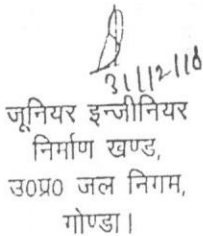 31/12/10
जूनियर इन्जीनियर
निर्माण खण्ड,
उ०प्र० जल निगम,
गोण्डा।